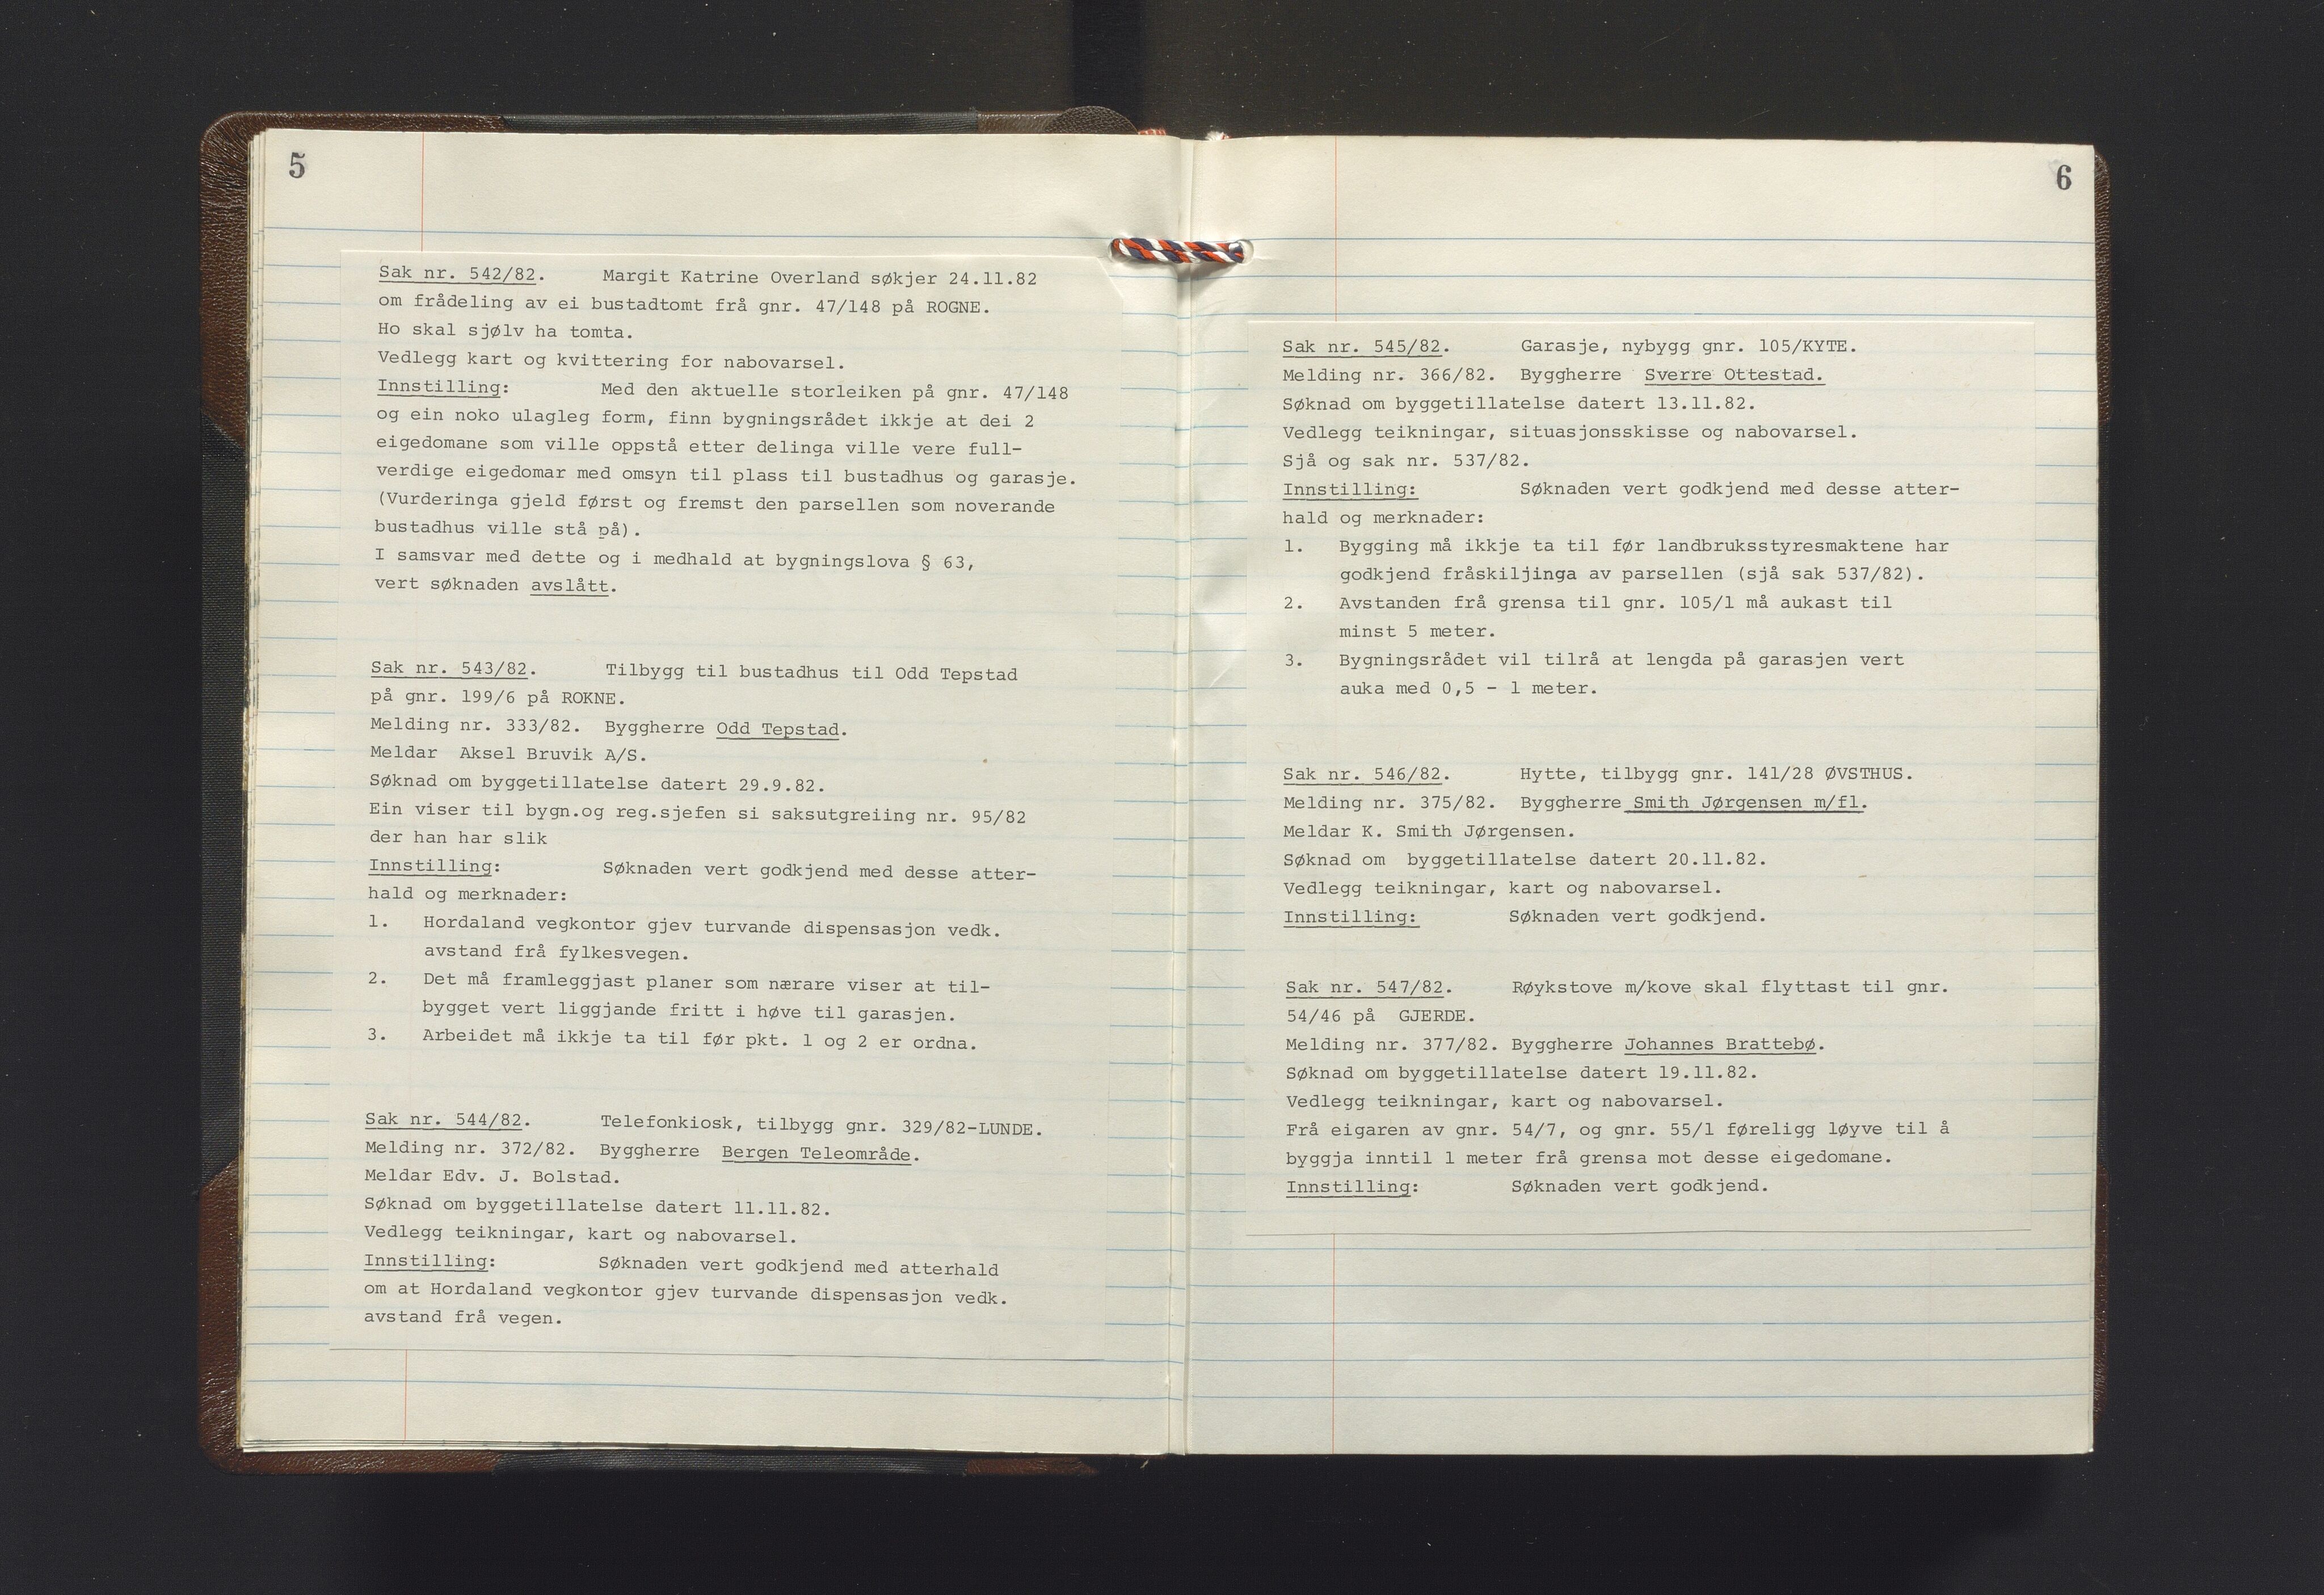 5
Sak nr. 542/82. Margit Katrine Overland søkjer 24.11.82
om frådeling av ei bustadtomt frå gnr. 47/148 på ROGNE.
Ho skal sjølv ha tomta.
Vedlegg kart og kvittering for nabovarsel.
Innstilling: Med den aktuelle storleiken på gnr. 47/148
og ein noko ulagleg form, finn bygningsrådet ikkje at dei 2
eigedomane som ville oppstå etter delinga ville vere full-
verdige eigedomar med omsyn til plass til bustadhus og garasje.
(Vurderinga gjeld først og fremst den parsellen som noverande
bustadhus ville stå på).
I samsvar med dette og i medhald at bygningslova § 63,
vert søknaden avslått.
Sak nr. 543/82. Tilbygg til bustadhus til Odd Tepstad
på gnr. 199/6 på ROKNE.
Melding nr. 333/82. Byggherre Odd Tepstad.
Meldar Aksel Bruvik A/S.
Søknad om byggetillatelse datert 29.9.82.
Ein viser til bygn.og reg.sjefen si saksutgreiing nr. 95/82
der han har slik
Innstilling: Søknaden vert godkjend med desse atter-
hald og merknader:
1. Hordaland vegkontor gjev turvande dispensasjon vedk.
avstand frå fylkesvegen.
2. Det må framleggjast planer som nærare viser at til-
bygget vert liggjande fritt i høve til garasjen.
3. Arbeidet må ikkje ta til før pkt. 1 og 2 er ordna.
Sak nr. 544/82. Telefonkiosk, tilbygg gnr. 329/82-LUNDE.
Melding nr. 372/82. Byggherre Bergen Teleområde.
Meldar Edv. J. Bolstad.
Søknad om byggetillatelse datert 11.11.82.
Vedlegg teikningar, kart og nabovarsel.
Innstilling: Søknaden vert godkjend med atterhald
om at Hordaland vegkontor gjev turvande dispensasjon vedk.
avstand frå vegen.
6
Sak nr. 545/82. Garasje, nybygg gnr. 105/KYTE.
Melding nr. 366/82. Byggherre Sverre Ottestad.
Søknad om byggetillatelse datert 13.11.82.
Vedlegg teikningar, situasjonsskisse og nabovarsel.
Sjå og sak nr. 537/82.
Innstilling: Søknaden vert godkjend med desse atter-
hald og merknader:
1. Bygging må ikkje ta til før landbruksstyresmaktene har
godkjend fråskiljinga av parsellen (sjå sak 537/82).
2. Avstanden frå grensa til gnr. 105/1 må aukast til
minst 5 meter.
3. Bygningsrådet vil tilrå at lengda på garasjen vert
auka med 0,5 - 1 meter.
Sak nr. 546/82. Hytte, tilbygg gnr. 141/28 ØVSTHUS.
Melding nr. 375/82. Byggherre Smith Jørgensen m/fl.
Meldar K. Smith Jørgensen.
Søknad om byggetillatelse datert 20.11.82.
Vedlegg teikningar, kart og nabovarsel.
Innstilling: Søknaden vert godkjend.
Sak nr. 547/82. Røykstove m/kove skal flyttast til gnr.
54/46 på GJERDE.
Melding nr. 377/82. Byggherre Johannes Brattebø.
Søknad om byggetillatelse datert 19.11.82.
Vedlegg teikningar, kart og nabovarsel.
Frå eigaren av gnr. 54/7, og gnr. 55/1 føreligg løyve til å
byggja inntil 1 meter frå grensa mot desse eigedomane.
Innstilling: Søknaden vert godkjend.